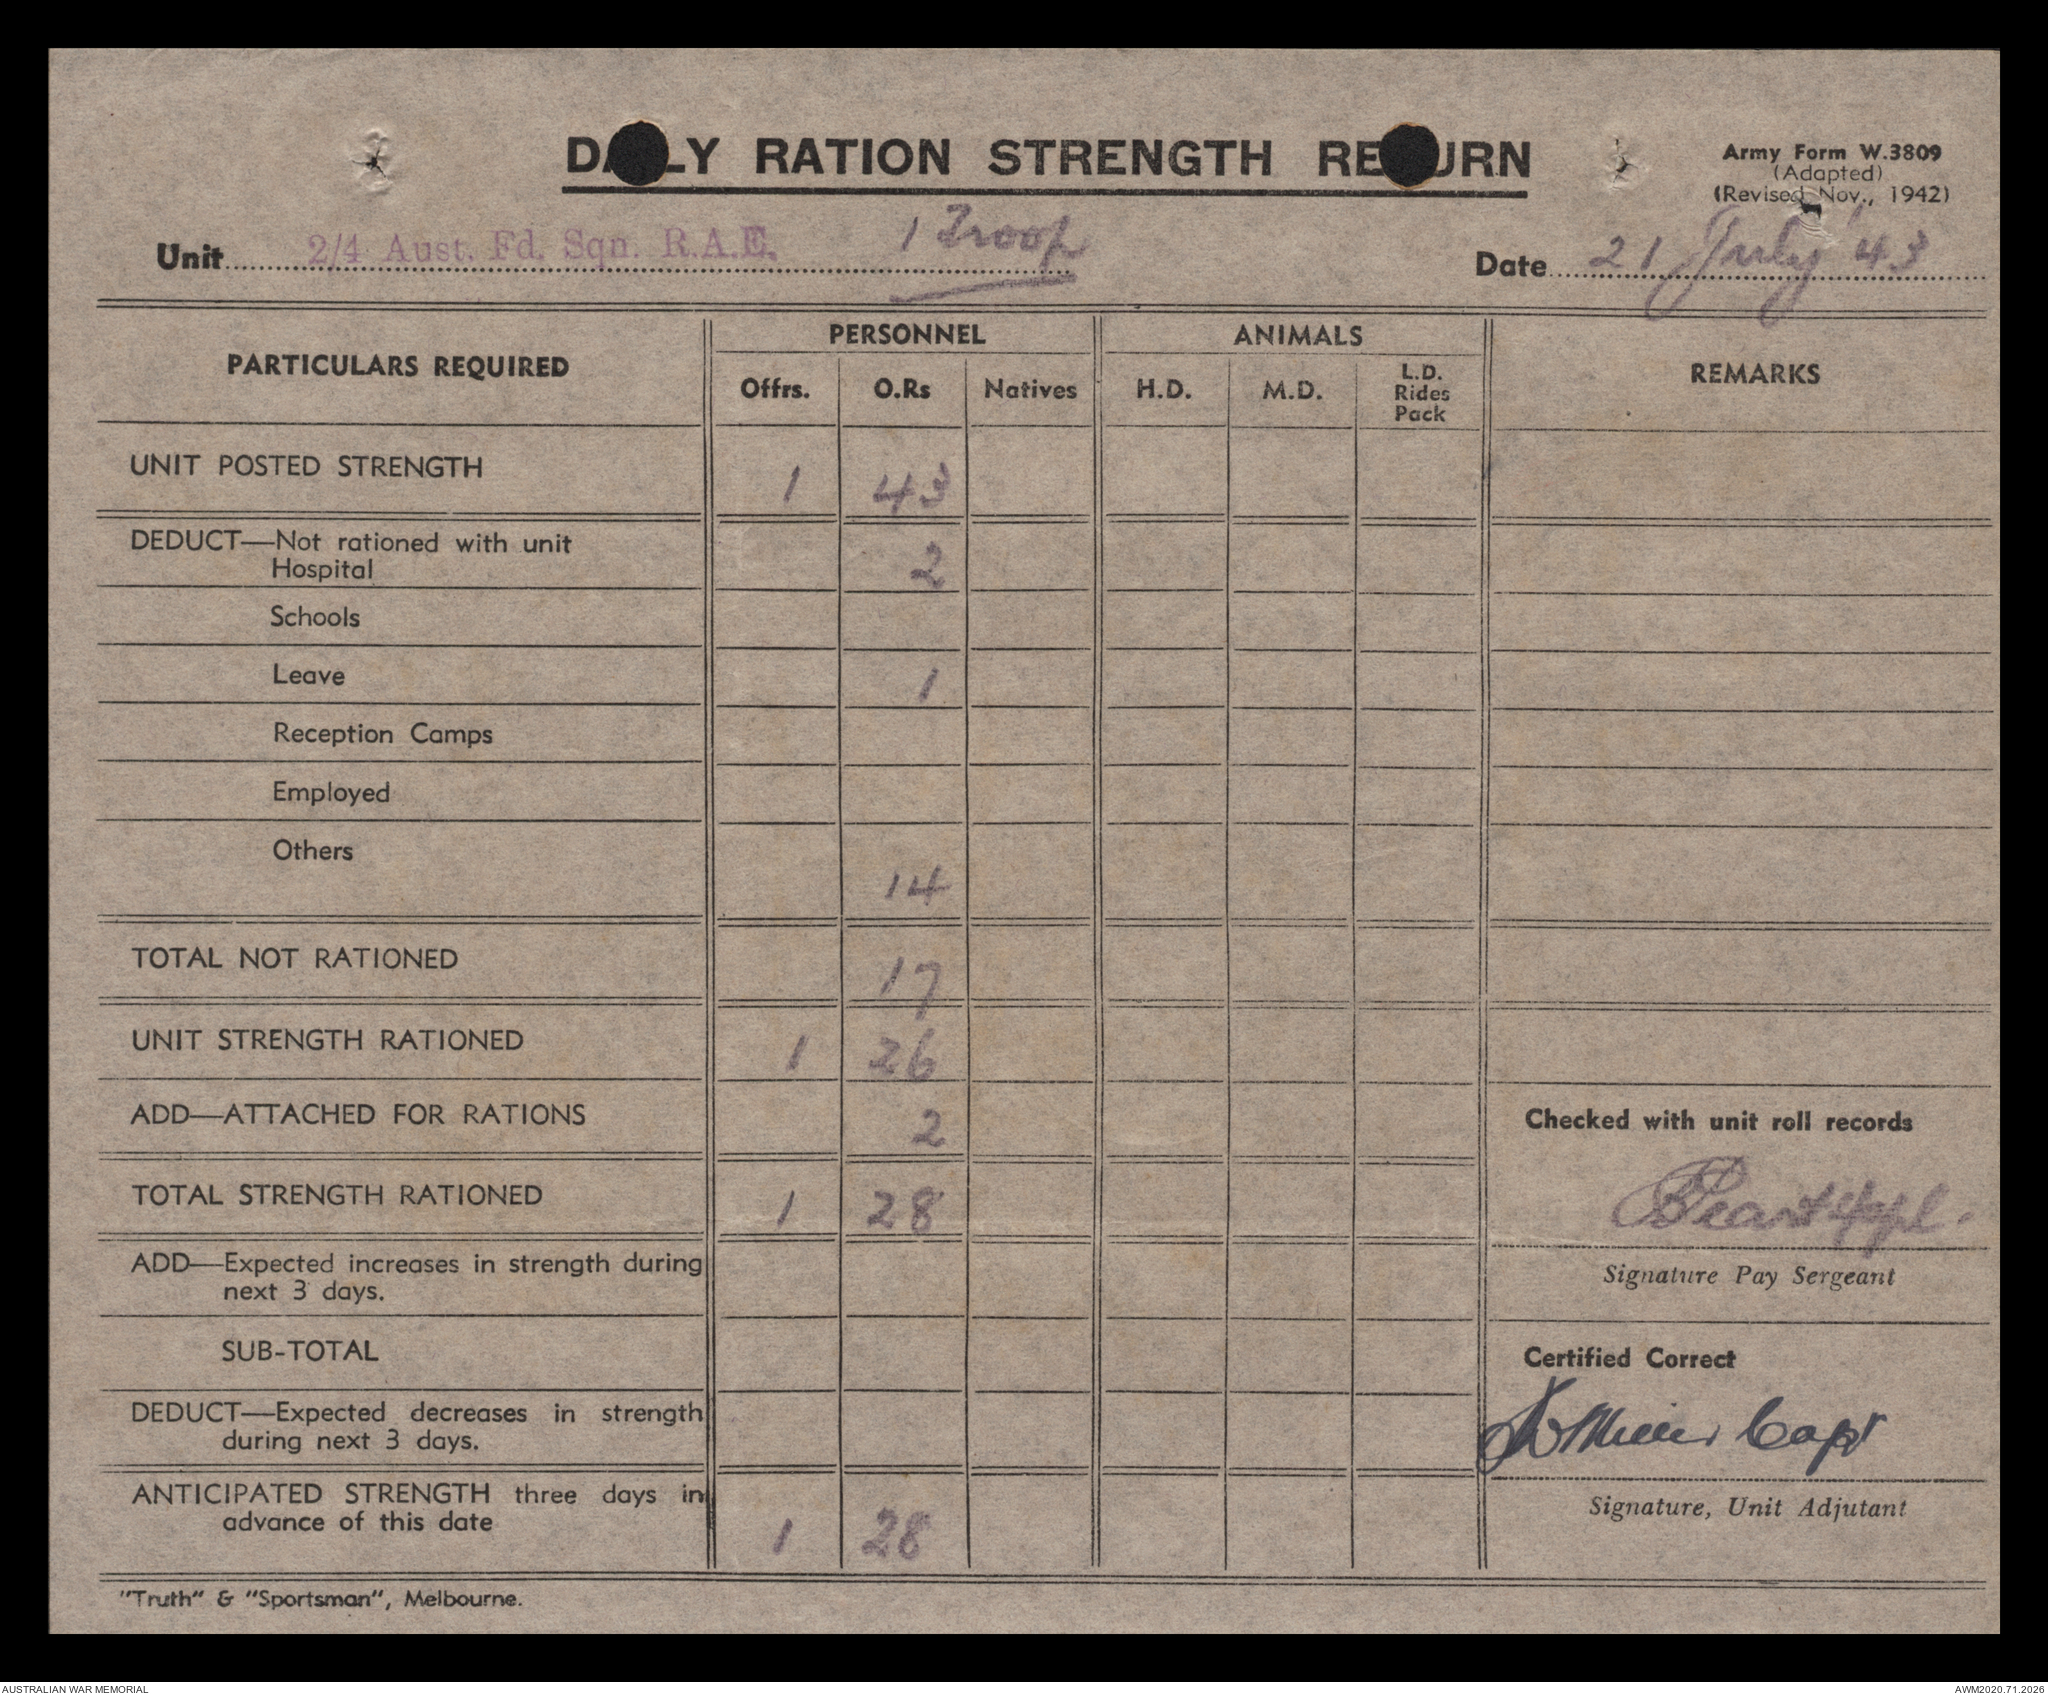 DAILY RATION STRENGTH RETURN
Army Form W.3809
(Adapted)
(Revised Nov., 1942)
Unit 2/4 Aust. Fd. Sqn. R.A.E. 1 Troop
Date 21 July '43
PARTICULARS REQUIRED PERSONNEL ANIMALS REMARKS
Offrs. O.Rs Natives H.D. M.D. L.D. Rides Pack
UNIT POSTED STRENGTH 1 43
DEDUCT—Not rationed with unit
Hospital 2
Schools
Leave 1
Reception Camps
Employed
Others 14
TOTAL NOT RATIONED 17
UNIT STRENGTH RATIONED 1 26
ADD—ATTACHED FOR RATIONS 2
Checked with unit roll records
TOTAL STRENGTH RATIONED 1 28
Signature Pay Sergeant
ADD—Expected increases in strength during
next 3 days.
SUB-TOTAL
Certified Correct
DEDUCT—Expected decreases in strength
during next 3 days.
Capt
Signature, Unit Adjutant
ANTICIPATED STRENGTH three days in
advance of this date 1 28
"Truth" & "Sportsman", Melbourne.
AUSTRALIAN WAR MEMORIAL
AWM2020.71.2026